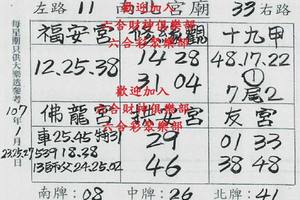 左路 11 南 宮廟 33 右路
歡迎加入
六合財神俱樂部
六合彩眾樂部
福安宮
十九甲
12.25.38
14 28
31 04
48.17.22
①
7尾2
歡迎加入
六合財神俱樂部
六合彩眾樂部
佛龍宮
宮
友宮
車25.45
539 18.38
13師父24.25.02
29
46
01 33
38 48
每星期只供大樂透參考
107年1月 日
23.25.27
南牌:08 中牌:26 北牌:41